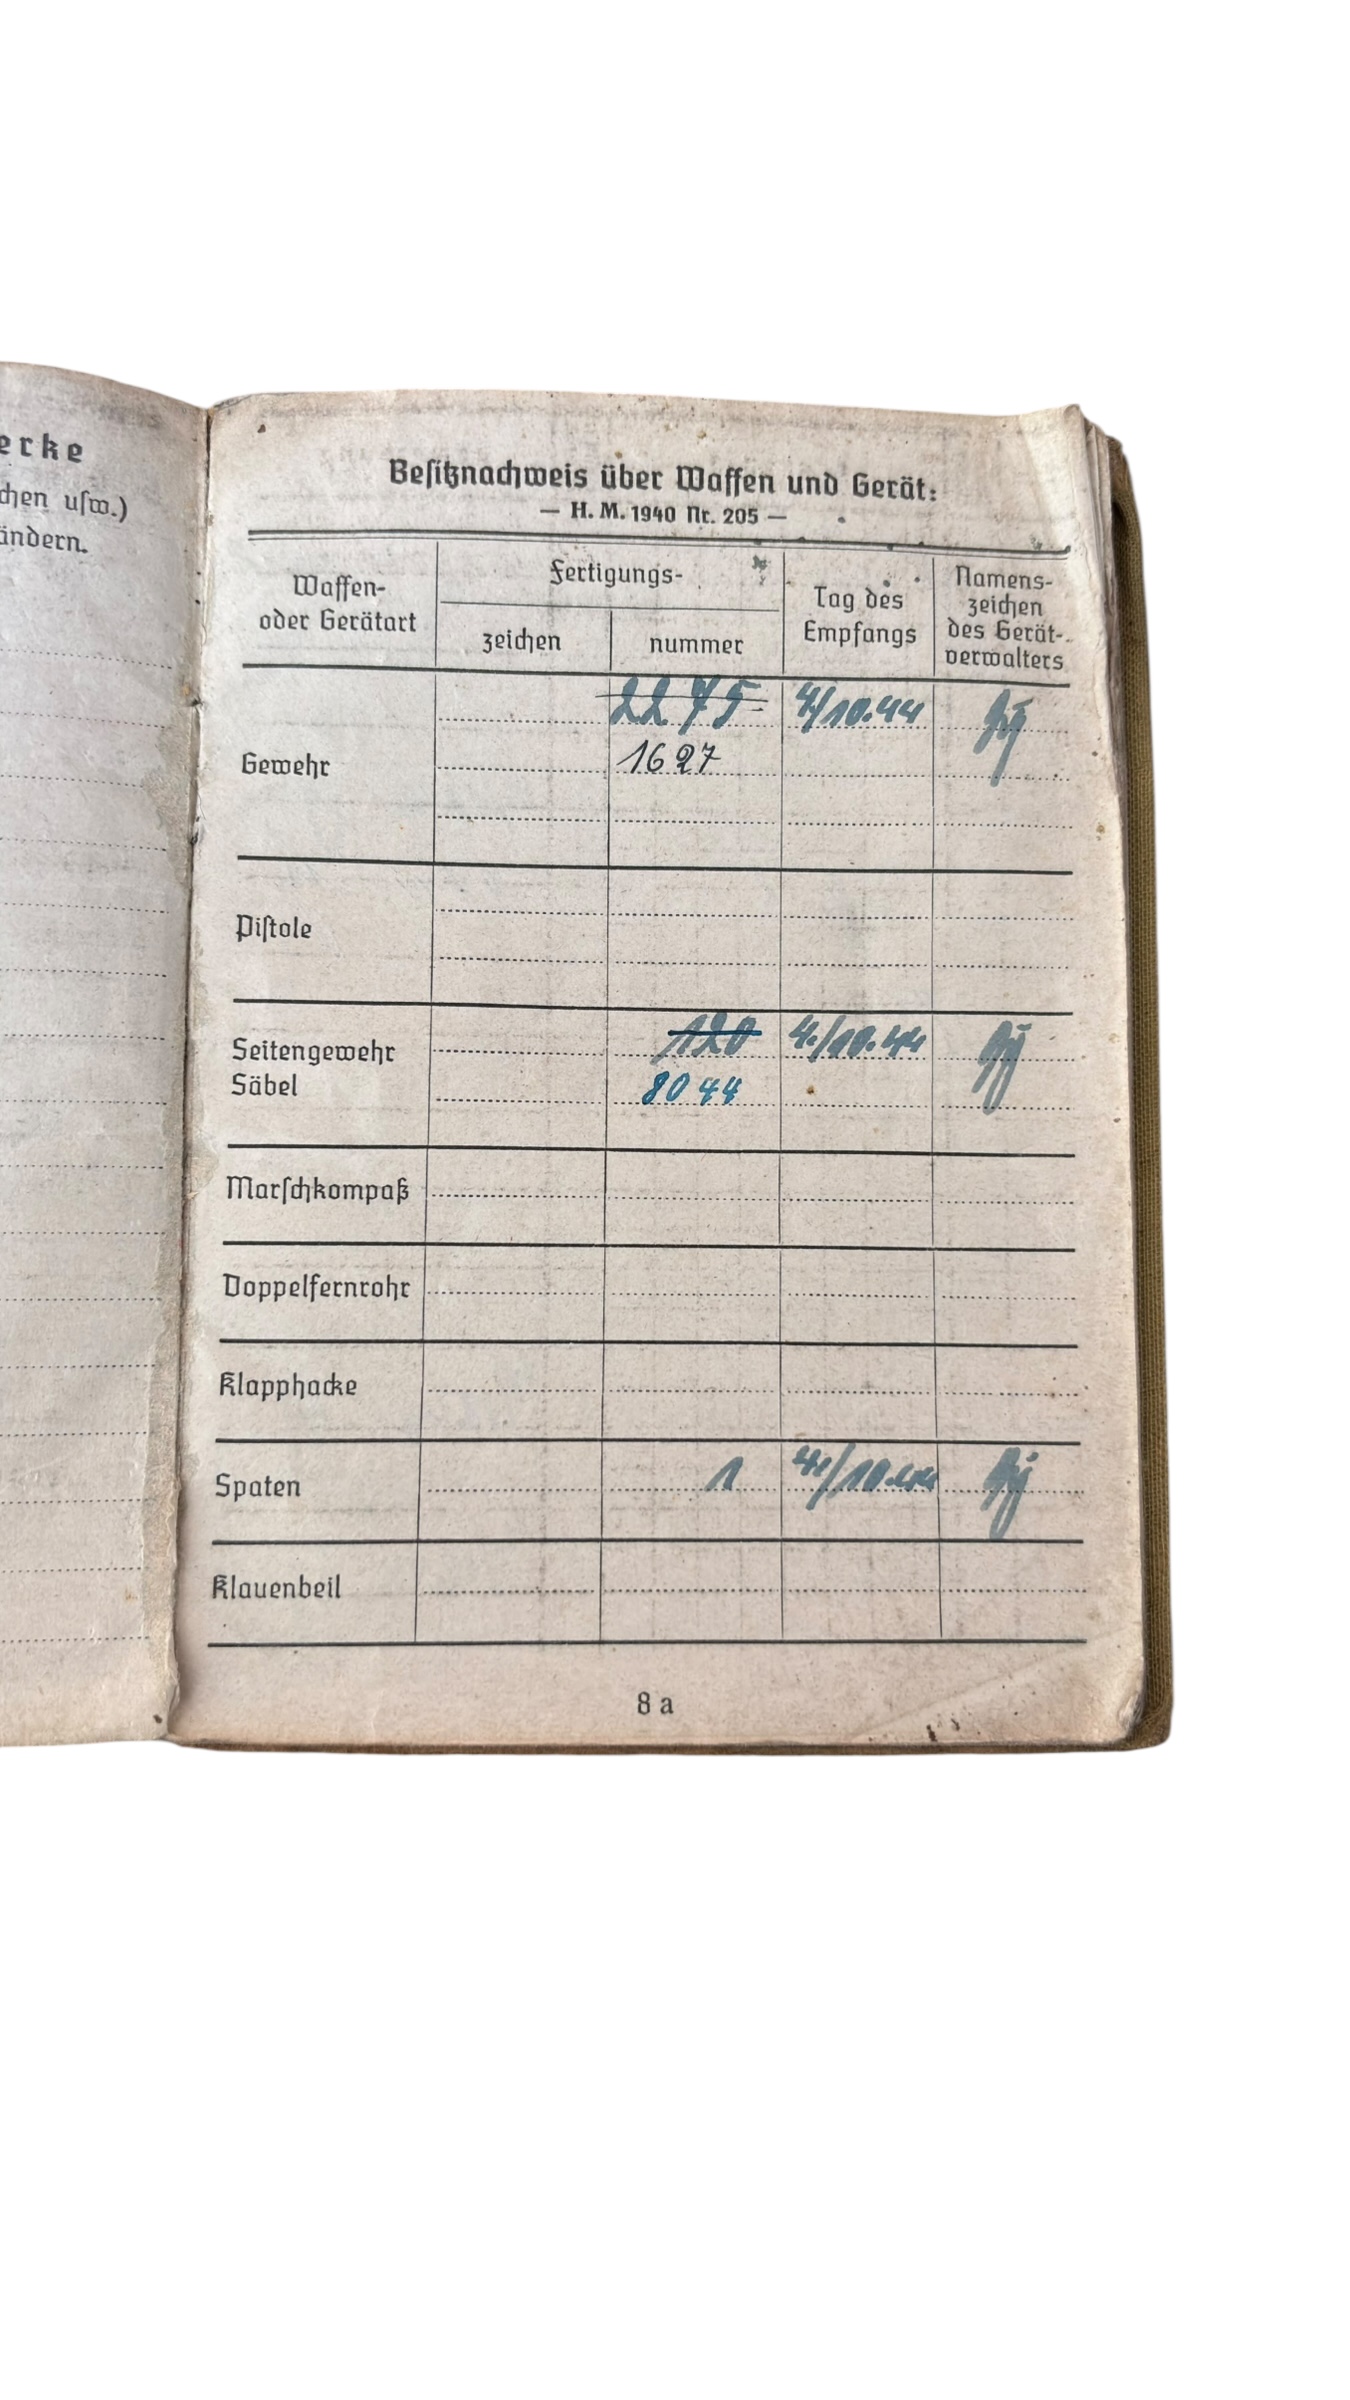 erke
chen uſw.)
ändern.
Beſitznachweis über Waffen und Gerät:
— H. M. 1940 Nr. 205 —
Waffen-
oder Gerätart
Fertigungs-
zeichen
nummer
Tag des
Empfangs
Namens-
zeichen
des Gerät-
verwalters
Gewehr
2275 4/10.44
1627
Piſtole
Seitengewehr
Säbel
120 4./10.44
8044
Marſchkompaß
Doppelfernrohr
Klapphacke
Spaten 1 4./10.44
Klauenbeil
8 a